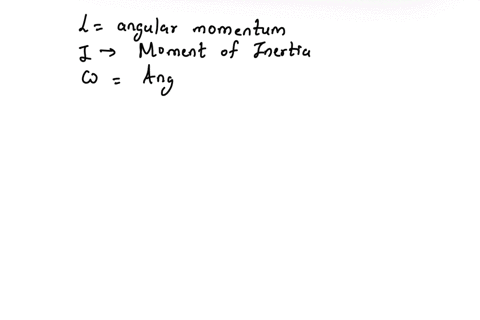 L = angular momentum
I → Moment of Inertia
ω = Ang